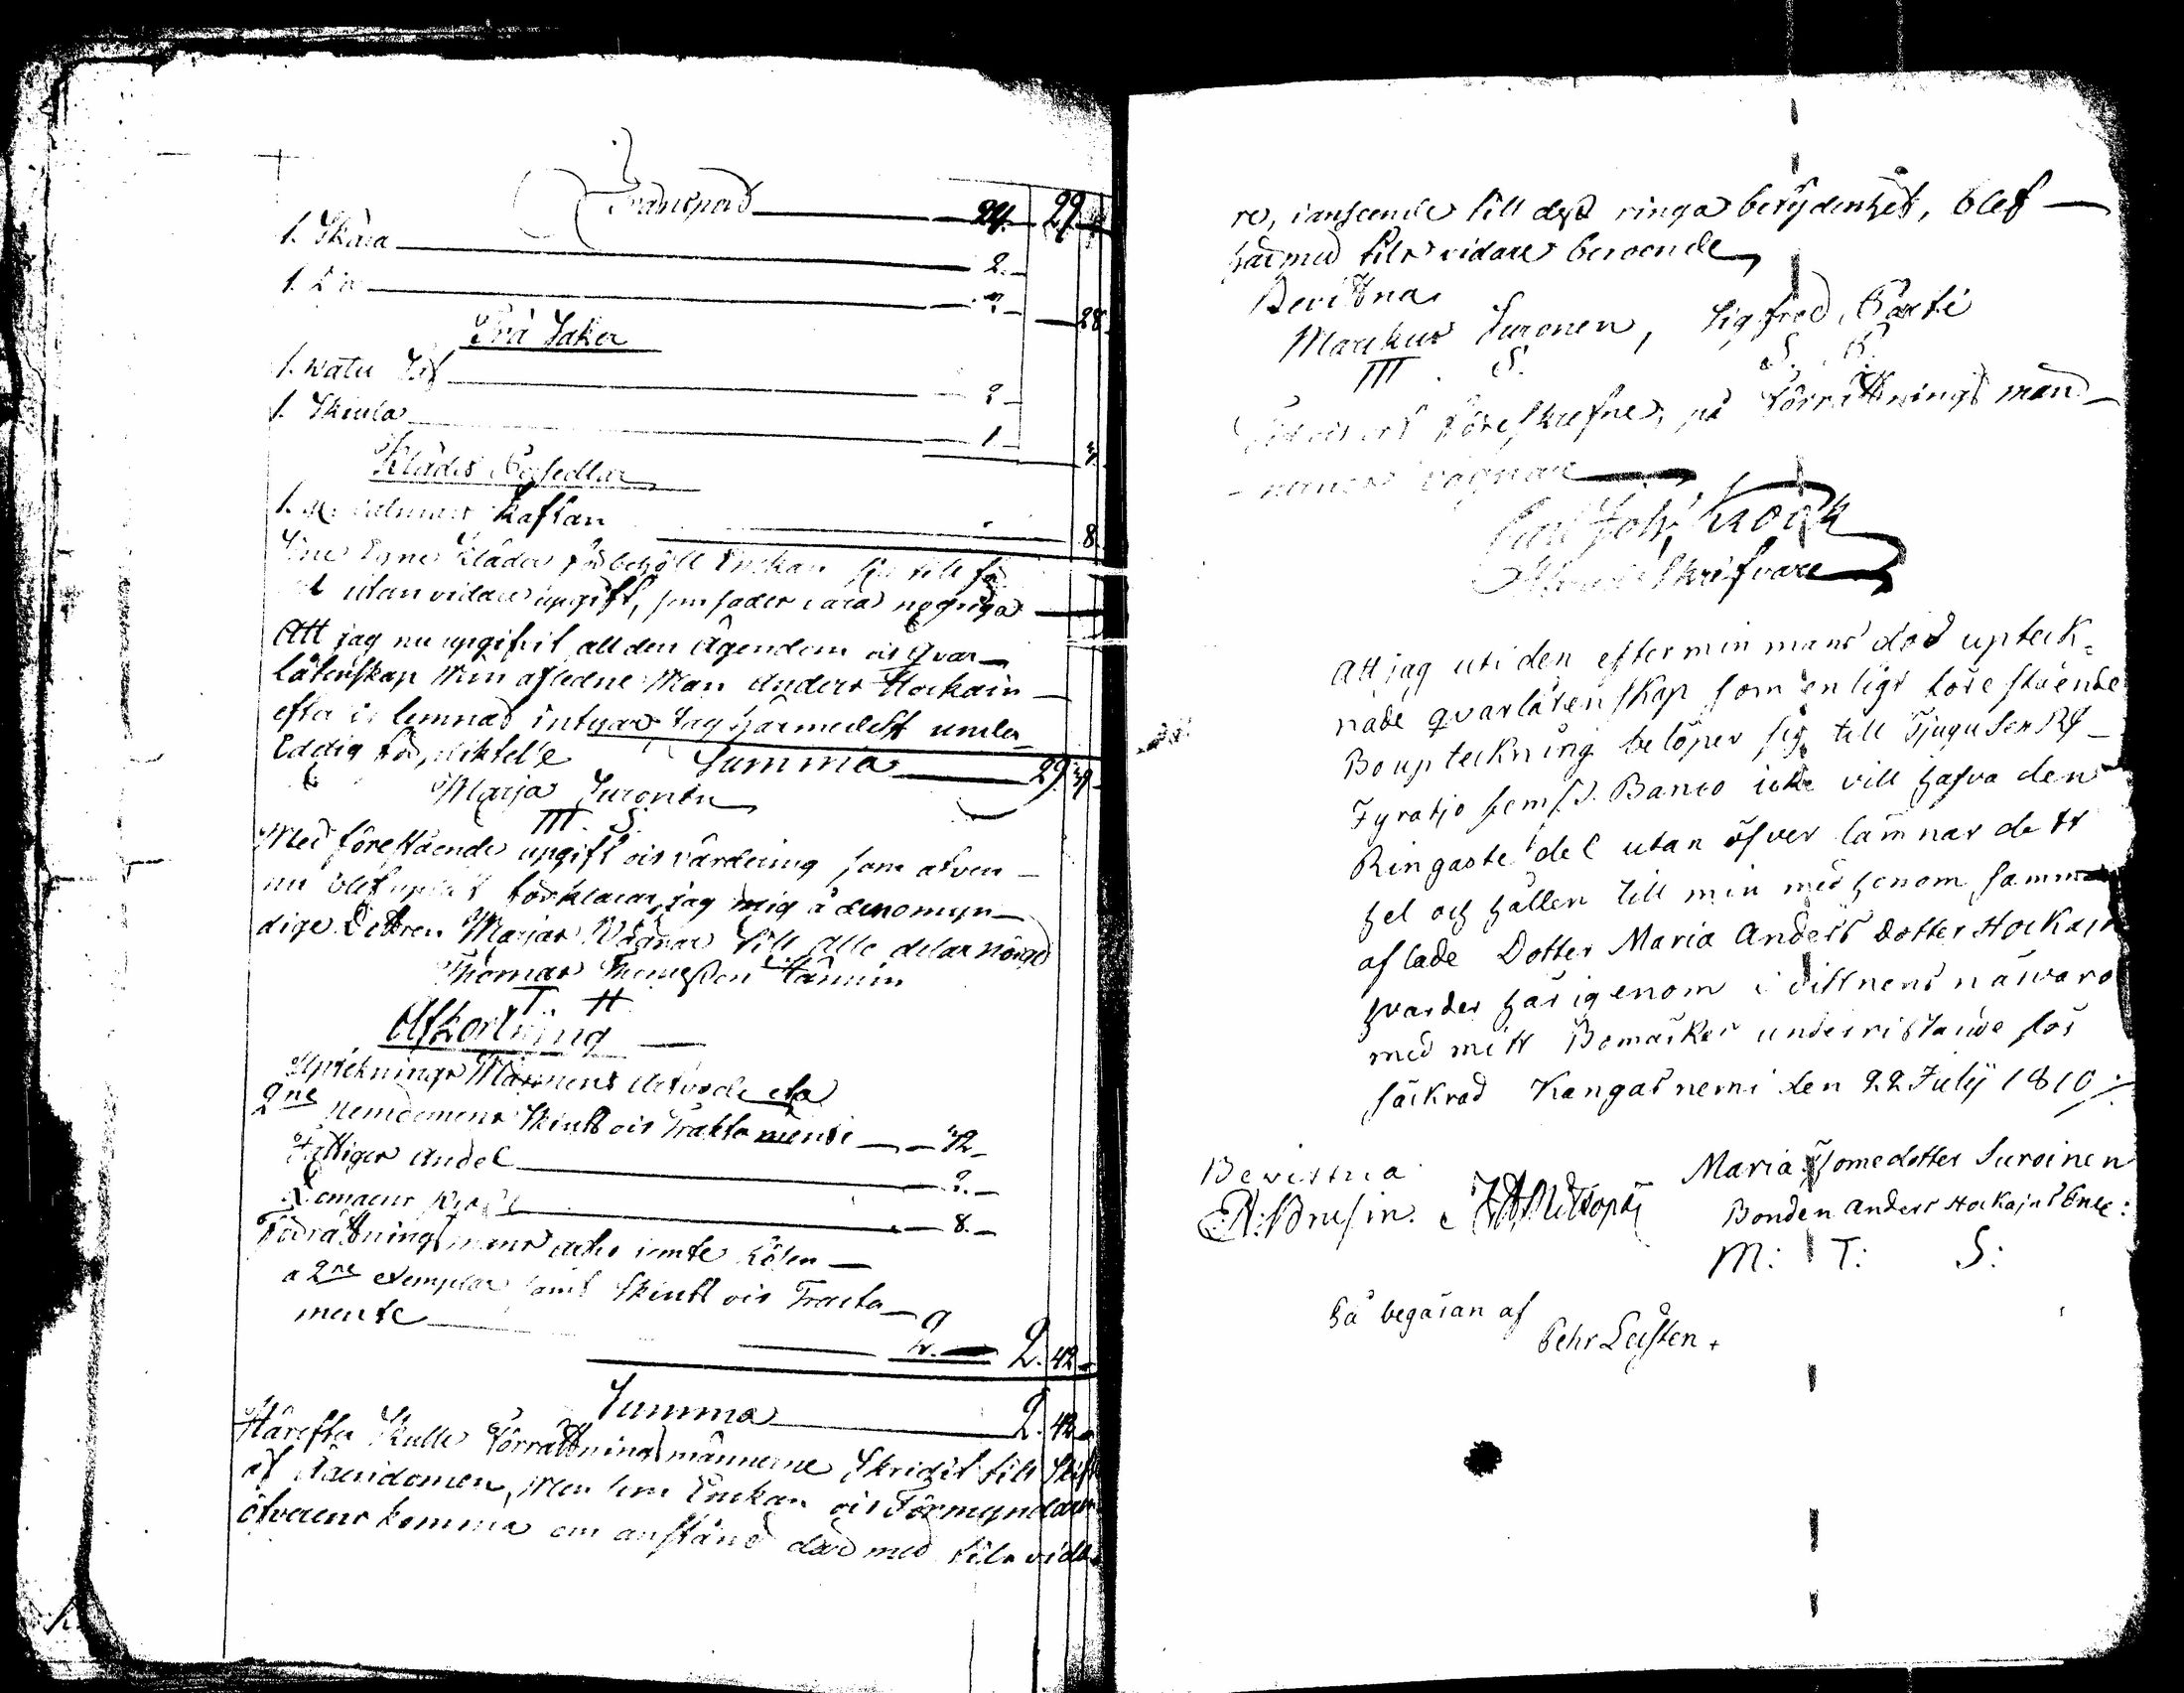 Transport 24. 29.
1. Skära 2.
1. Lia 2 28
Trä Saker
1. watu 2
1. Skiula 1 3
Kläder Persedlar
1. walmars kaftan 8.
Sine Egne Kläder förbehöllt Enckan sig till
utan vidare upgift, som sades vara nogriga
Att jag nu upgifvit all den Ägendom ock qvar
låtenskap Min afledne Man Anders Hockain
efter sig lemnad intygar Jag härmedelst under
Eddig förpliktelse Summa 29. 39
Marja Suronen
III. S.
Med föreståendе upgift ock värdering som äfven
nu blef uplåst förklarar jag mig å den omyn-
dige Dottren Marjas Vägnar till alla delar nögd
Thomas Thomesson Hännin
T. H.
Afkortning
Uptekninge Mannens Arfvode eta
2ne Nemdemens Skiutts ock Traktamente 42
Fattiges Andel 2.
8.
Förrättnings mans arfvo iemte Lösen
a 2ne exemplar samt Skiuts ock Tracta
mente 2. 42
Summa 2. 42
Härefter Skulle Förrättnings männerne Skridit till Skift
af Ägendomen, Men som Enckan ock Förmyndaren
öfverens komma om anstånd där med tils vida
re, i anseende till dess ringa betydenhet, blef
härmed tils vidare beroende
Bevittna
Markus Suronen, Sigfred Parti
III S. S. P.
föreskrefne, på Förrättnings man
nens vägnar
Carl Joh: Krook
Skrifvare
Att jag uti den efter min mans död upteck=
nade qvarlåtenskap som enligt föreståendе
Boupteckning belöper sig till Tjugu sex Rd
Fyratjo fem s. Banco icke vill hafva den
Ringaste del utan öfver lämnar dett
hel och hållen till min med honom samman
aflade Dotter Maria Anders dotter Hockain
hvarder härigenom i vittnens närvaro
med mitt Bomärkes underristande för
säkrad Kangasnemi den 22 Julij 1810 ./.
Maria Tomedotter Suroinen
Bonden Anders Hockains Enk:
M: T: S:
Bevittna
A: Brusin.
På begäran af
Pehr Leisten.